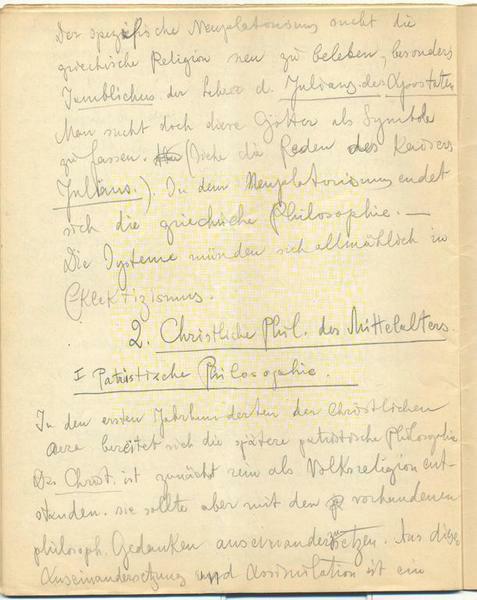 Der spezifische Neuplatonismus sucht die
griechische Religion neu zu beleben, besonders
Jamblichus der Lehrer d. Julians des Apostaten
Man sucht doch diese Götter als Symbole
zu fassen. (siehe die Reden des Kaisers
Julians.). In dem Neuplatonismus endet
sich die griechische Philosophie. —
Die Systeme münden sich allmählich in
Eklektizismus.
2. Christliche Phil. des Mittelalters.
I Patristische Philosophie.
In den ersten Jahrhunderten der Christlichen
aera bereitet sich die spätere patristische Philosophie
Das Christ. ist zunächst rein als Volksreligion ent-
standen. sie sollte aber mit den vorhandenen
philosoph. Gedanken auseinanderzusetzen. Aus dieser
Auseinandersetzung und Assimilation ist ein